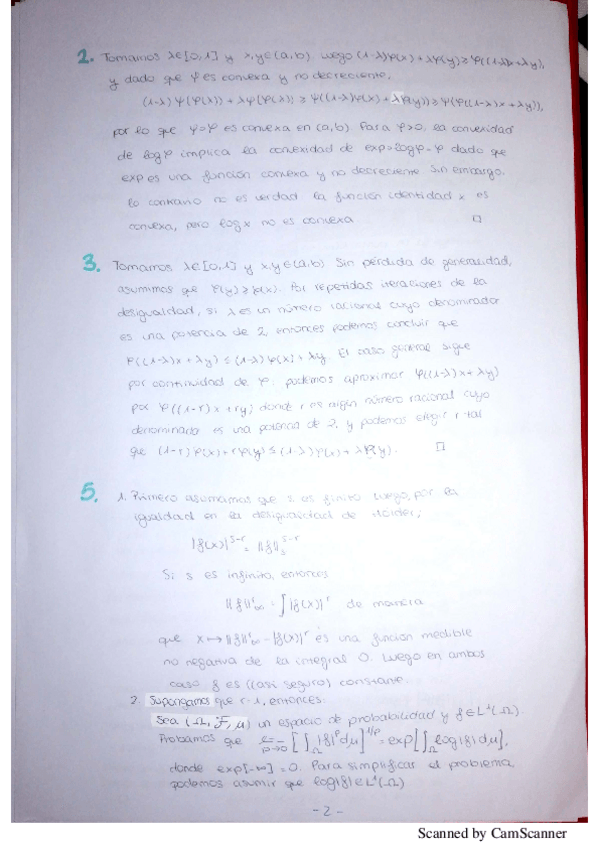 2. Tomamos λ∈[0,1] y x,y∈(a,b). Luego (1-λ)φ(x)+λφ(y)≥φ((1-λ)x+λy),
y dado que ψ es convexa y no decreciente,
(1-λ)ψ(φ(x))+λψ(φ(y))≥ψ((1-λ)φ(x)+λφ(y))≥ψ(φ((1-λ)x+λy)),
por lo que ψ∘φ es convexa en (a,b). Para φ>0, la convexidad
de logφ implica la convexidad de exp∘logφ=φ dado que
exp es una función convexa y no decreciente. Sin embargo,
lo contrario no es verdad la función identidad x es
convexa, pero log x no es convexa □
3. Tomamos λ∈[0,1] y x,y∈(a,b). Sin pérdida de generalidad,
asumimos que φ(y)≥φ(x). Por repetidas iteraciones de la
desigualdad, si λ es un número racional cuyo denominador
es una potencia de 2 entonces podemos concluir que
φ((1-λ)x+λy)≤(1-λ)φ(x)+λy. El caso general sigue
por continuidad de φ. podemos aproximar φ((1-λ)x+λy)
por φ((1-r)x+ry) donde r es algún número racional cuyo
denominador es una potencia de 2, y podemos elegir r tal
que (1-r)φ(x)+rφ(y)≤(1-λ)φ(x)+λφ(y). □
5. 1. Primero asumamos que s es finito. Luego, por la
igualdad en la desigualdad de Hölder;
|f(x)|^{s-r}=||f||_s^{s-r}
Si s es infinito, entonces
||f||_∞^r=∫|f(x)|^r de manera
que x→||f||_∞^r-|f(x)|^r es una función medible
no negativa de la integral 0. Luego en ambos
caso f es (casi seguro) constante.
2. Supongamos que r=1, entonces:
Sea (Ω,F,μ) un espacio de probabilidad y f∈L¹(Ω).
Probamos que [∫_Ω|f|^p dμ]^{1/p}=exp[∫_Ω log|f|dμ],
donde exp[-∞]=0. Para simplificar el problema
podemos asumir que log|f|∈L¹(Ω)
-2-
Scanned by CamScanner